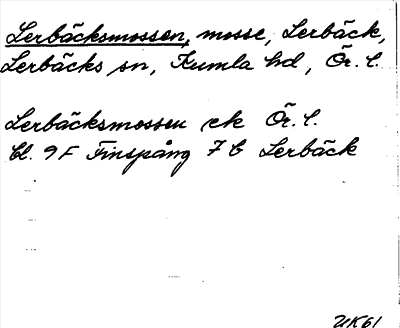 Lerbäcksmossen, mosse, Lerbäck,
Lerbäcks sn, Kumla hd, Ör. l.
Lerbäcksmossen ek Ör. l.
bl. 9F Finspång 7 b Lerbäck
UK61